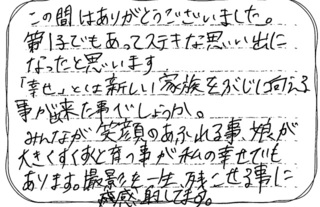 この間はありがとうございました。
第1子でもあってステキな思い出に
なったと思います
「幸せ」とは新しい家族をぶじに向える
事が出来た事でしょうか。
みんなが笑顔のあふれる事、娘が
大きくすくすくと育つ事が私の幸せでも
あります。撮影を一生、残こせる事に
感謝してます。